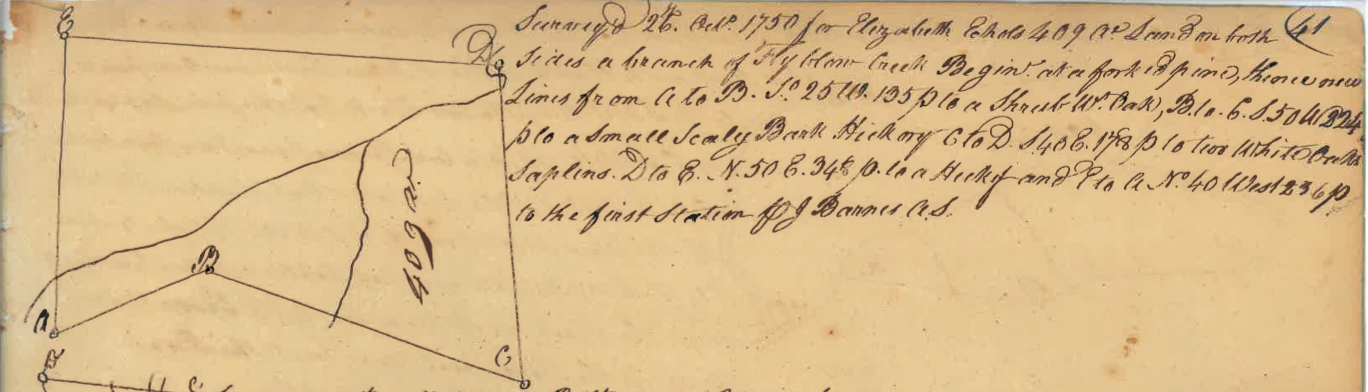 E
Survey'd 26. Octr. 1750 for Elizabeth Echols 409 Ac Land on both
41
D
Sides a branch of Flyblow Creek Begin'. at a forked pine, thence new
Lines from A to B. So. 25 W. 135 p to a Shrub Wt. Oak, B. to C. S. 50 W 224
p to a Small Scaly Bark Hickory C to D. S 40 E. 178 p to two White Oak
Saplins. D to E. N. 50 E. 348 p. to a Hicky and E to A No. 40 West 236 p
to the first Station p J Barnes A.S.
409 a
B
A
C